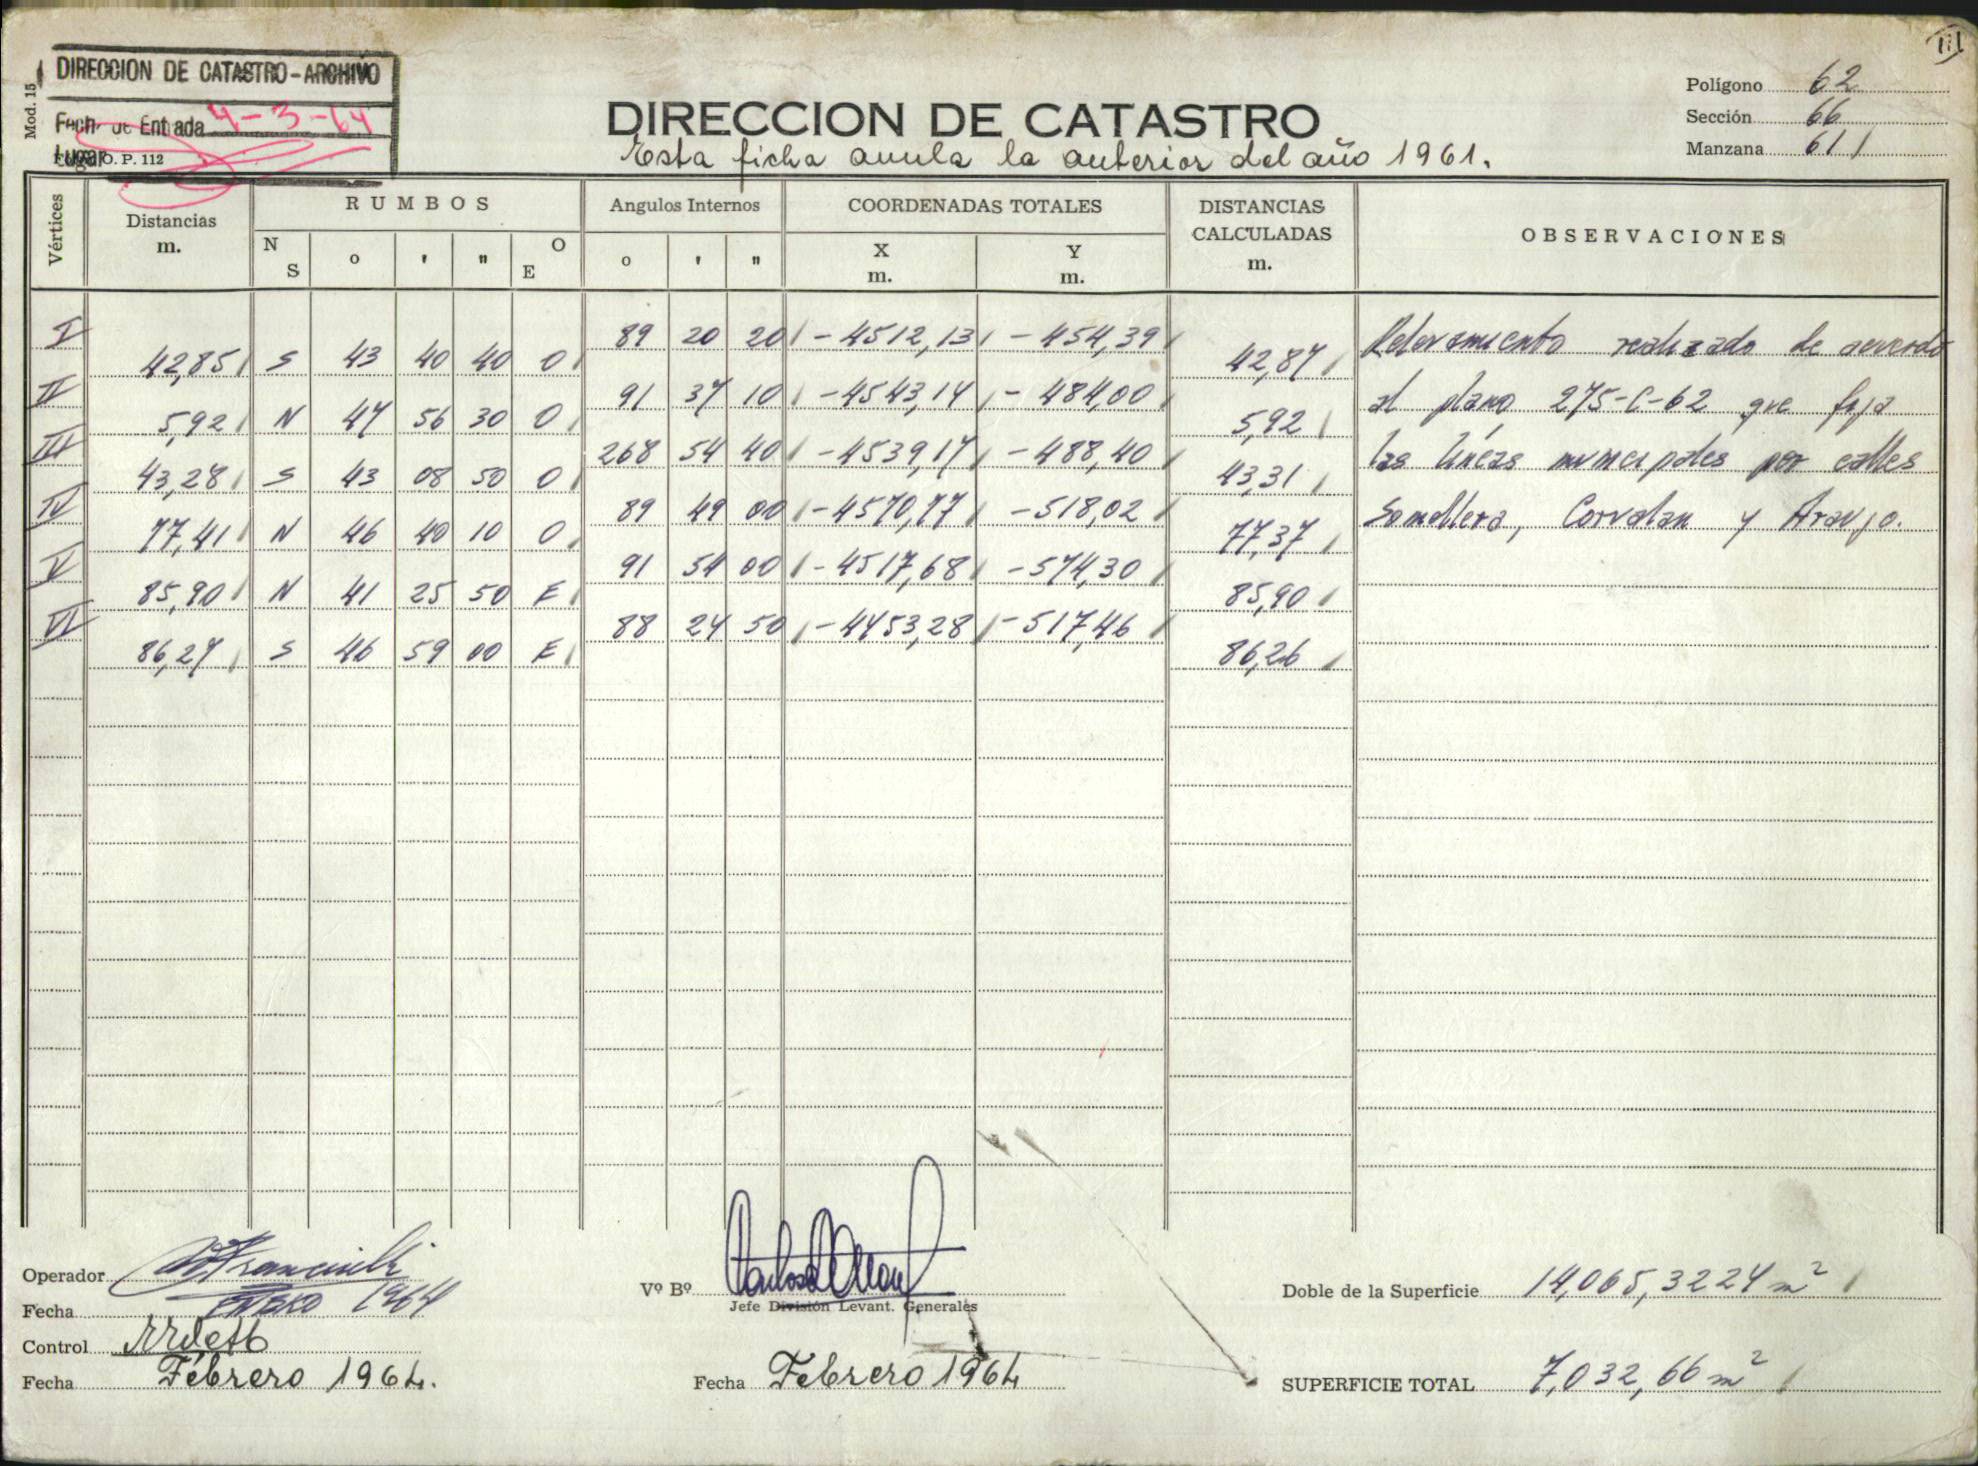 DIRECCION DE CATASTRO - ARCHIVO
Fecha de Entrada 4-3-64
Lugar
O. P. 112
Mod. 15
DIRECCION DE CATASTRO
Esta ficha anula la anterior del año 1961.
Polígono 62
Sección 66
Manzana 611
Vértices
Distancias m.
RUMBOS
N S o ' " O E
Angulos Internos
o ' "
COORDENADAS TOTALES
X m. Y m.
DISTANCIAS CALCULADAS m.
OBSERVACIONES
I 89 20 20 -4512,13 -454,39
42,85 S 43 40 40 O 42,87
II 91 37 10 -4543,14 -484,00
5,92 N 47 56 30 O 5,92
III 268 54 40 -4539,17 -488,40
43,28 S 43 08 50 O 43,31
IV 89 49 00 -4570,77 -518,02
77,41 N 46 40 10 O 77,37
V 91 54 00 -4517,68 -574,30
85,90 N 41 25 50 E 85,90
VI 88 24 50 -4453,28 -517,46
86,27 S 46 59 00 E 86,26
Relevamiento realizado de acuerdo
al plano 275-C-62 que fija
las líneas municipales por calles
Somellera, Corvalan y Araujo.
Operador
Fecha ENERO 1964
Control
Fecha Febrero 1964.
Vº Bº
Jefe División Levant. Generales
Fecha Febrero 1964
Doble de la Superficie 14,065,3224 m²
SUPERFICIE TOTAL 7,032,66 m²